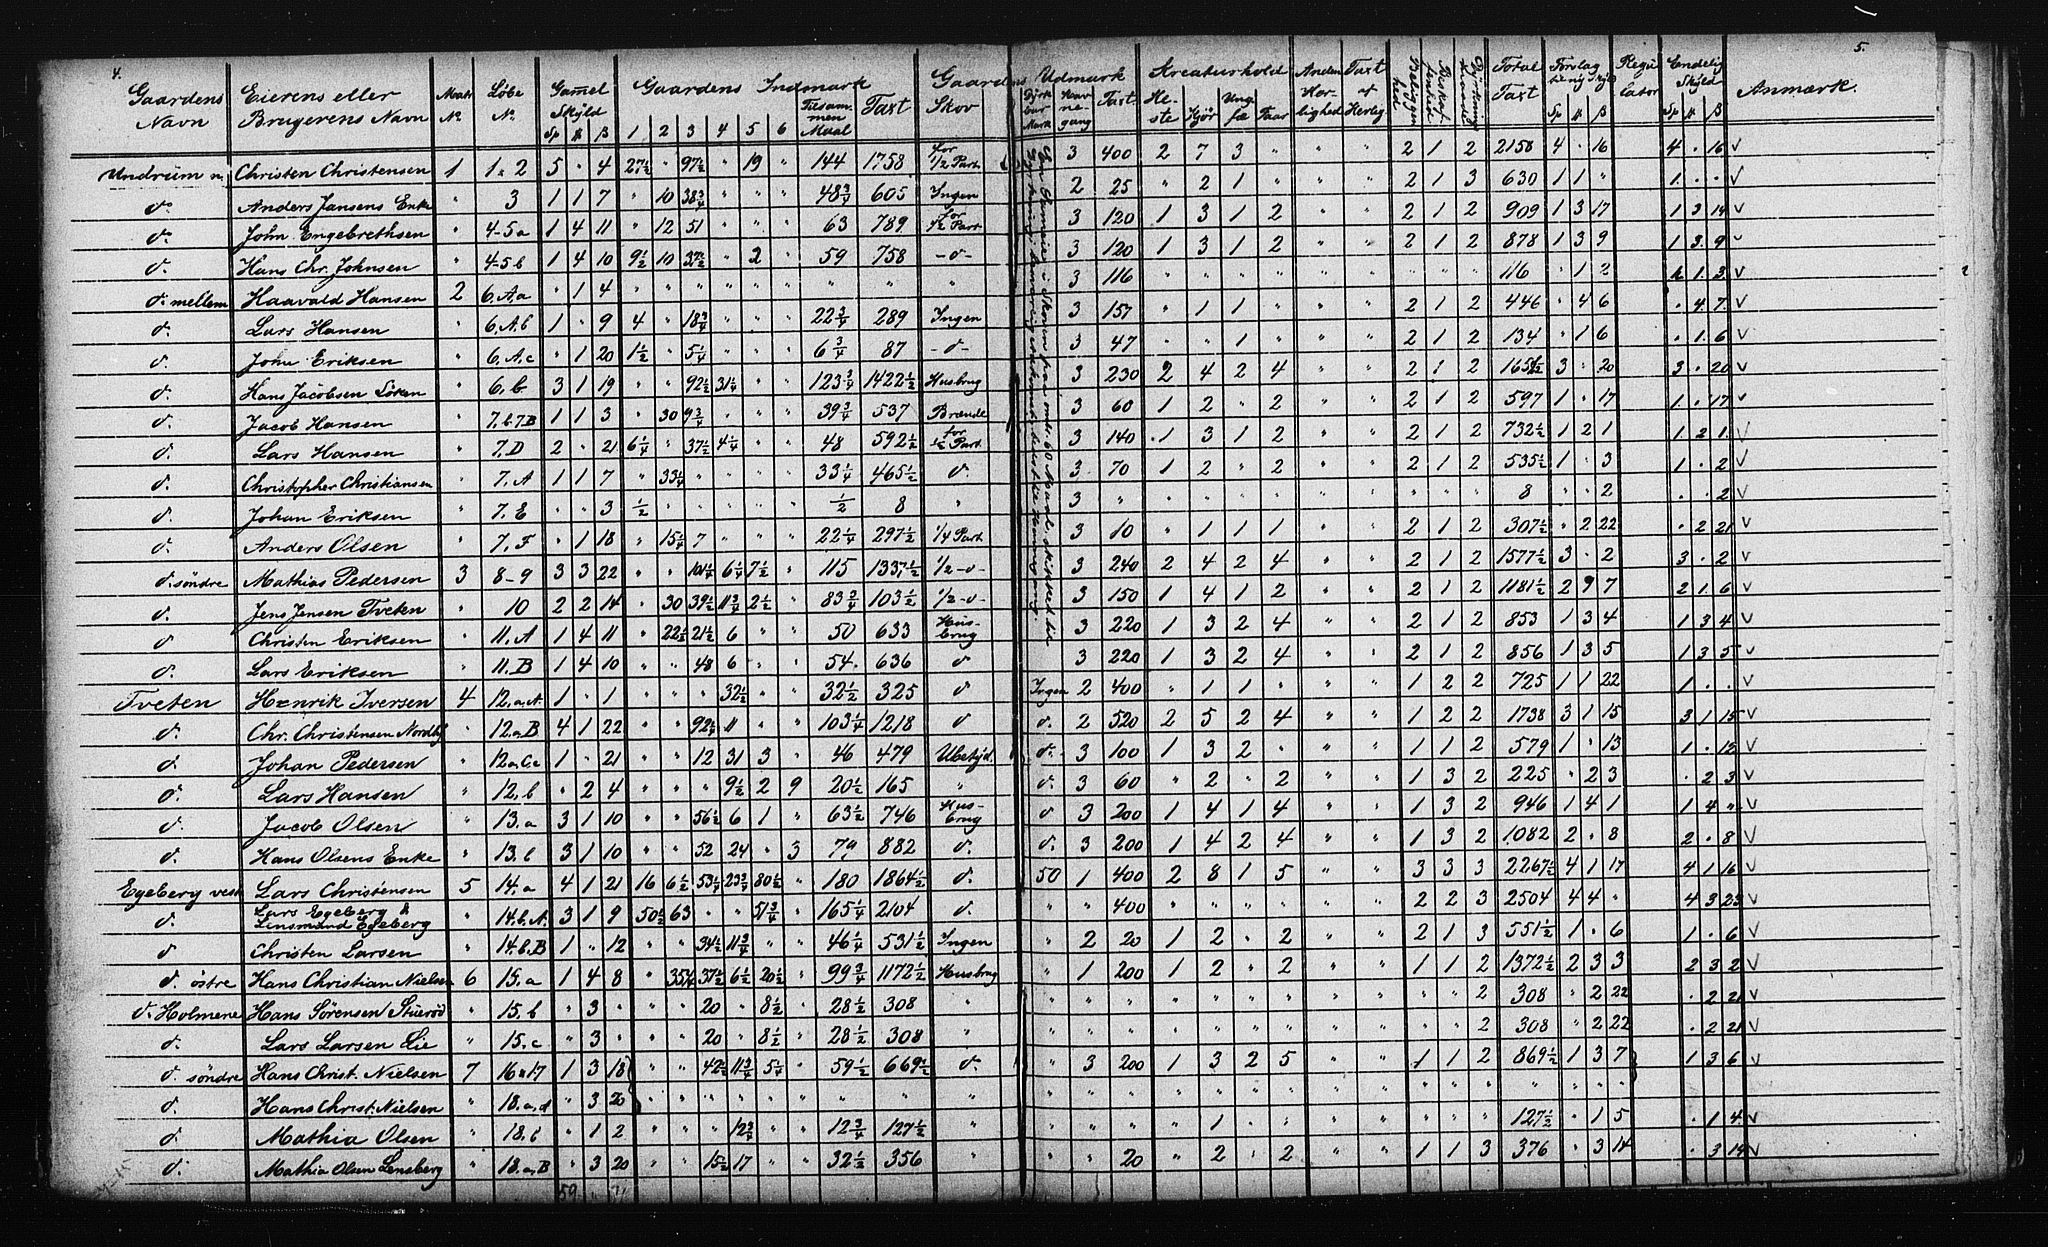 4.
5.
Gaardens Navn | Eierens eller Brugerens Navn | Matr № | Løbe № | Gamel Skyld Sp # β | Gaardens Indmark 1 2 3 4 5 6 Tilsammen Maal Taxt | Gaardens Skov | Udmark Dyrkbar Mark Havnegang Taxt | Kreaturhold Heste Kjør Ungfæ Faar | Anden Herlighed | Taxt af Herlig | Beliggenhed | Beskaffenhed | Dyrknings | Total Taxt | Forslag til ny Skyld Sp # β | Regulator | Endelig Skyld Sp # β | Anmærk.
Undrum n. Christen Christensen 1 1. 2 5 " 4 27½ " 97½ " 19 " 144 1758 for ½ Part 3 400 2 7 3 " " " 2 1 2 2158 4 . 16 4 . 16 V
d° Anders Jansens Enke " 3 1 1 7 " 10 38¾ " " " 48¾ 605 Ingen 2 25 " 2 1 " " " 2 1 3 630 1 1 " 1 . . V
d. John Engebrethsen " 4-5a 1 4 11 " 12 51 " " " 63 789 for ½ Part 3 120 1 3 1 2 " " 2 1 2 909 1 3 17 1 3 14 V
d. Hans Chr. Johnsen " 4-5b 1 4 10 9½ 10 37½ " 2 " 59 758 -d- 3 120 1 3 1 2 " " 2 1 2 878 1 3 9 1 3 9 V
d. mellem Haavald Hansen 2 6.A.a " 1 4 " " " " " " " " " 3 116 " " " " " " " " " 116 " 1 2 1. 3. V
d. Lars Hansen " 6.A.b 1 " 9 4 " 18¾ " " " 22¾ 289 Ingen 3 157 " 1 1 " " " 2 1 2 446 " 4 6 . 4. 7. V
d. John Eriksen " 6.A.c " 1 20 1½ " 5¼ " " " 6¾ 87 -d- 3 47 " " 1 " " " 2 1 2 134 " 1 6 . 1. 6 V
d. Hans Jacobsen " 6.b. 3 1 19 " " 92½ 31¼ " " 123¾ 1422½ Husbrug 3 230 2 4 2 4 " " 2 1 2 1652½ 3 . 20 3 . 20 V
d. Jacob Hansen " 7.b.7.B 1 1 3 " 30 9¾ " " " 39¾ 537 Brænde 3 60 1 2 " 2 " " 2 1 2 597 1 . 17 1 . 17 V
d. Lars Hansen " 7.D 2 " 21 6¼ " 37½ 4¼ " " 48 592½ for ½ Part 3 140 1 3 1 2 " " 2 1 2 732½ 1 2 1 1 2 1. V
d. Christopher Christiansen " 7.A 1 1 7 " 33¼ " " " " 33¼ 465½ d. 3 70 1 2 " 2 " " 2 1 2 535½ 1 . 3 1 . 2 V
d. Johan Eriksen " 7.E " " 3 ½ " " " " " ½ 8 " 3 " " " " " " " " " " 8 " " 2 . . 2 V
d. Anders Olsen " 7.F " 1 18 " 15¼ 7 " " " 22¼ 297½ ¼ Part 3 10 " 1 1 1 " " 2 1 2 307½ " 2 22 . 2 21 V
d. søndre Mathias Pedersen 3 8-9 3 3 22 " " 101¼ 6¼ 7½ " 115 1337½ ½-d- 3 240 2 4 2 4 " " 2 1 2 1577½ 3 . 2 3 . 2 V
d. Jens Jensen Tveten " 10 2 2 14 " 30 39½ 11¾ 2½ " 83¾ 103½ ½-d- 3 150 1 4 1 2 " " 2 1 2 1181½ 2 9 7 2 1. 6 V
d Christen Eriksen " 11.A 1 4 11 " 22½ 21½ 6 " " 50 633 Husbrug 3 220 1 3 2 4 " " 2 1 2 853 1 3 4 1 3 4 V
d. Lars Eriksen " 11.B 1 4 10 " " 48 6 " " 54. 636 d 3 220 1 3 2 4 " " 2 1 2 856 1 3 5 1 3 5 V
Tveten Henrik Iversen 4 12.a.A 1 . 1 " " " 32½ " " 32½ 325 d Ingen 2 400 " 1 1 " " " 1 2 2 725 1 1 22 1 . . V
d. Chr. Christensen Nordby " 12.a.B 4 1 22 " " 92¼ 11 " " 103¼ 1218 d d. 2 520 2 5 2 4 " " 1 2 2 1738 3 1 15 3 1 15 V
d. Johan Pedersen " 12a.C.c 1 . 21 " " 12 31 3 " 46 479 Ubetyd. d. 3 100 1 3 2 " " " 1 1 2 579 1 . 13 1 . 13 V
d. Lars Hansen " 12.b " 2 4 " " " 9½ 2 9 20½ 165 " d. 3 60 " 2 " 2 " " 1 3 2 225 " 2 3 . 2 3 V
d. Jacob Olsen " 13.a 3 1 10 " " 56½ 6 1 " 63½ 746 Husbrug d 3 200 1 4 1 4 " " 1 3 2 946 1 4 1 1 4 " V
d. Hans Olsens Enke " 13.b 3 1 10 " " 52 24 " 3 79 882 d. d. 3 200 1 4 2 4 " " 1 3 2 1082 2 . 8 2 . 8 V
Egeberg vest Lars Christensen 5 14.a 4 1 21 16 6½ 53¼ 23¾ 80½ " 180 1864½ d. 50 1 400 2 8 1 5 " " 3 3 3 2267½ 4 1 17 4 1 16 V
d. Lars Egeberg & Lensmand Egeberg " 14.b.A. 3 1 9 50½ 63 " " 51¾ " 165¼ 2104 d. " " 400 " " " " " " 2 2 3 2504 4 4 " 4 3 23 V
d Christen Larsen " 14.b.B 1 " 12 " " 34½ 11¾ " " 46¼ 531½ Ingen " 2 20 1 2 " 2 " " 2 1 3 551½ 1 . 6 1 . 6 V
d. østre Hans Christian Nielsen 6 15.a 1 4 8 " 35¼ 37½ 6½ 20½ " 99¾ 1172½ Husbrug " 1 200 1 2 " 2 " " 1 1 2 1372½ 2 3 3 2 3 2 V
d. Holmene Hans Sørensen Stuerød " 15.b " 3 " " " 20 " 8½ " 28½ 308 " " " " " " " " " " " " 2 308 " 2 22 . 2 21 V
d. Lars Larsen Lie " 15.c " 3 " " " 20 " 8½ " 28½ 308 " " " " " " " " " " " " 2 308 " 2 22 . 2 21 V
d. søndre Hans Christ. Nielsen 7 16.17 1 3 18 " " 42½ 11¾ 5¼ " 59½ 669½ d. " 3 200 1 3 2 5 " " 1 1 2 869½ 1 3 7 1 3 6 V
d. Hans Christ. Nielsen " 18.a.d " 3 20 " " " " " " " " " " " " " " " " " " " " " " " " "
d. Mathia Olsen " 18.b " 1 2 " " " 12¾ " " 12¾ 127½ " " " " " 1 " " " " " " " 127½ " 1 5 . 1 4. V
d. Mathia Olsen Lensberg " 18.a.B " 3 20 " " 15½ 17 " " 32½ 356 " " " 20 " 2 . 2 " " 1 1 3 376 " 3 14 . 3 14 V
59